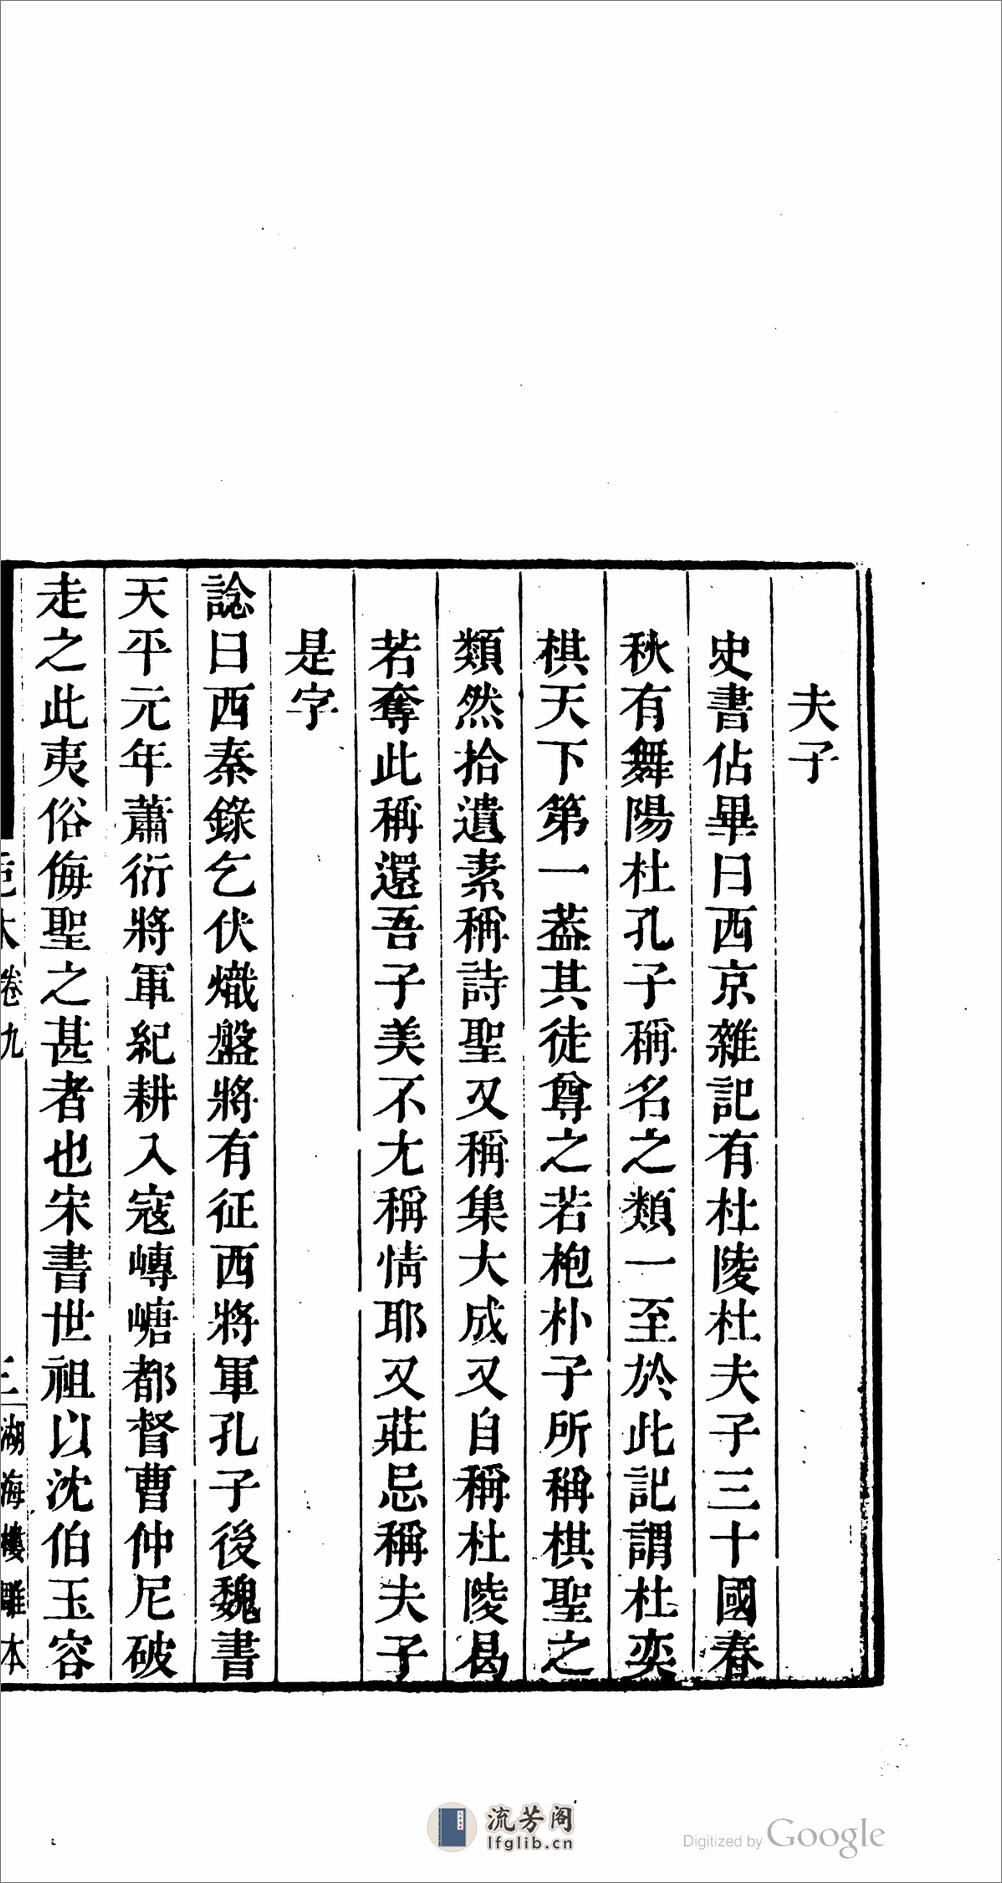 夫子
史書佔畢曰西京雜記有杜陵杜夫子三十國春
秋有舞陽杜孔子稱名之類一至於此記謂杜奕
棋天下第一葢其徒尊之若枹朴子所稱棋聖之
類然拾遺素稱詩聖又稱集大成又自稱杜陵曷
若奪此稱還吾子美不尤稱情耶又莊忌稱夫子
是字
諗曰西秦錄乞伏熾盤將有征西將軍孔子後魏書
天平元年蕭衍將軍紀耕入寇嶹嵣都督曹仲尼破
走之此夷俗侮聖之甚者也宋書世祖以沈伯玉容
卷九
三
湖海樓雕本
流芳阁
lfglib.cn
Digitized by Google